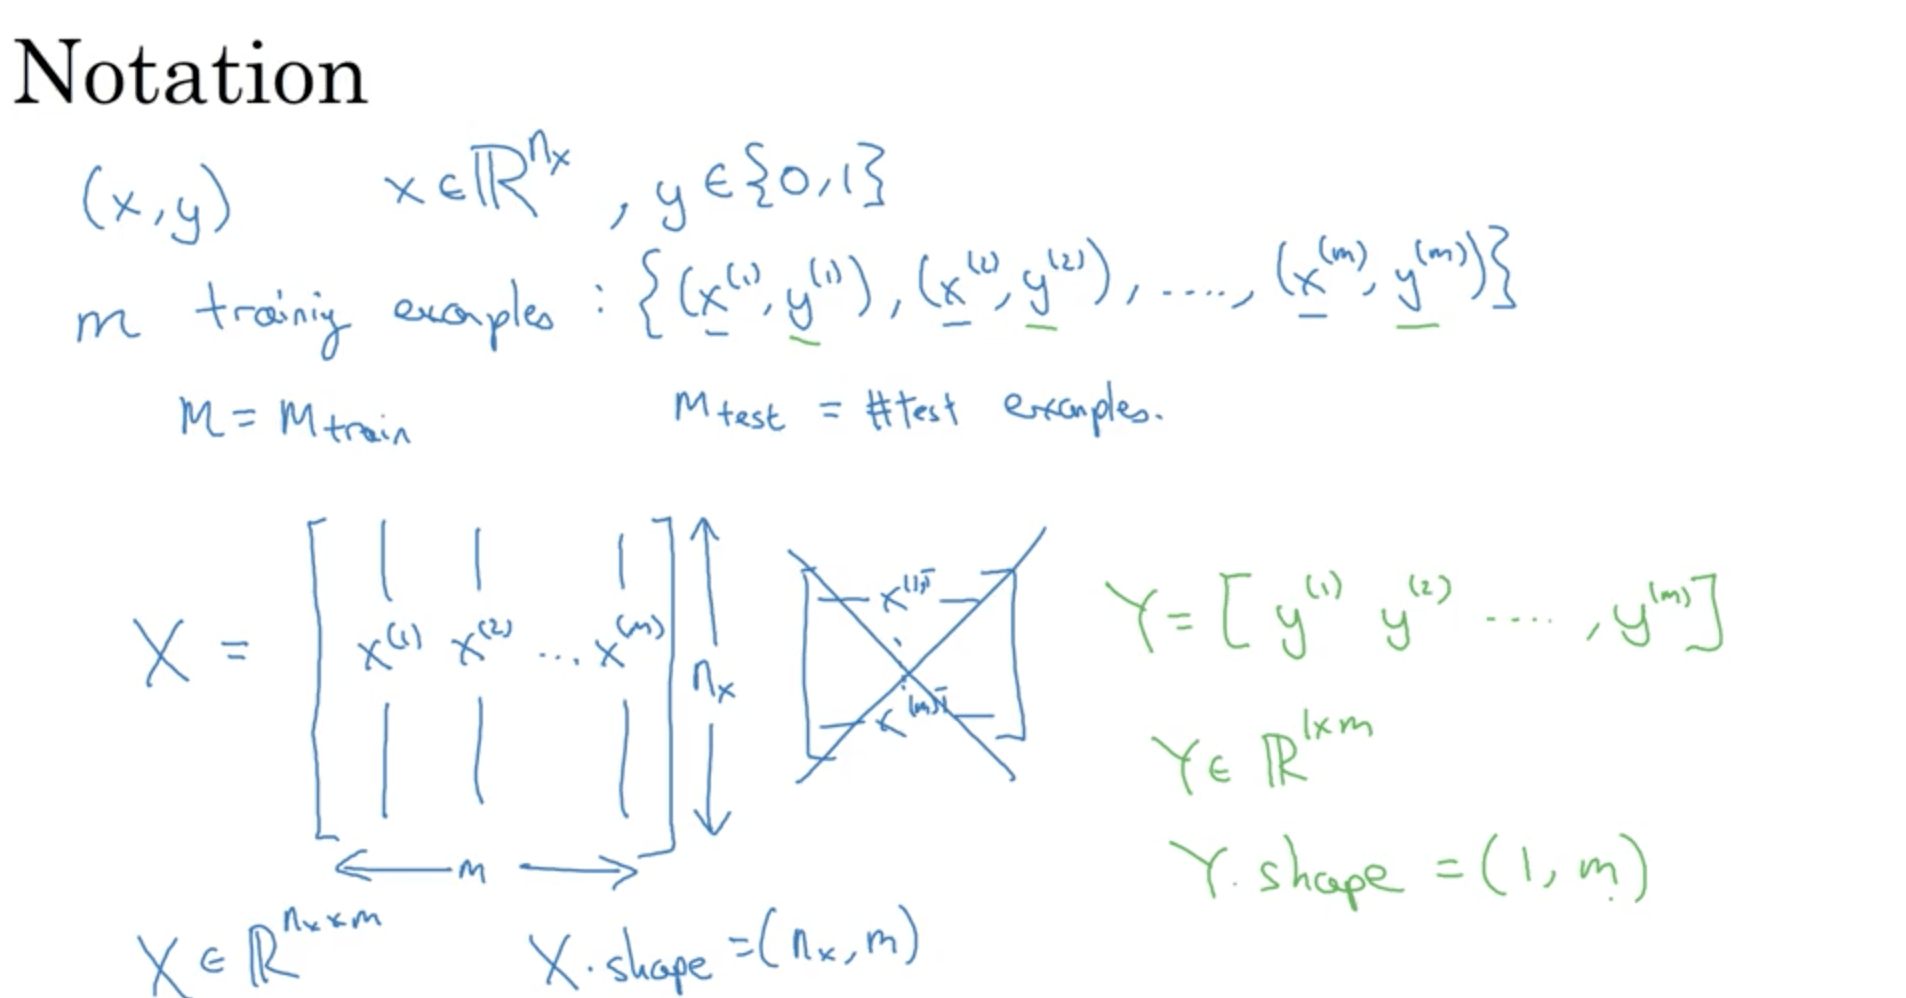 Notation
(x,y) x∈ℝ^{n_x}, y∈{0,1}
m trainiy examples : {(x^{(1)}, y^{(1)}), (x^{(2)}, y^{(2)}), ...., (x^{(m)}, y^{(m)})}
M = M_{train} M_{test} = #test examples.
X = [ x^{(1)} x^{(2)} ... x^{(m)} ] n_x
m
x^{(1)T}
⋮
x^{(m)T}
Y = [ y^{(1)} y^{(2)} ...., y^{(m)} ]
Y ∈ ℝ^{1×m}
Y.shape = (1, m)
X ∈ ℝ^{n_x×m} X.shape = (n_x, m)